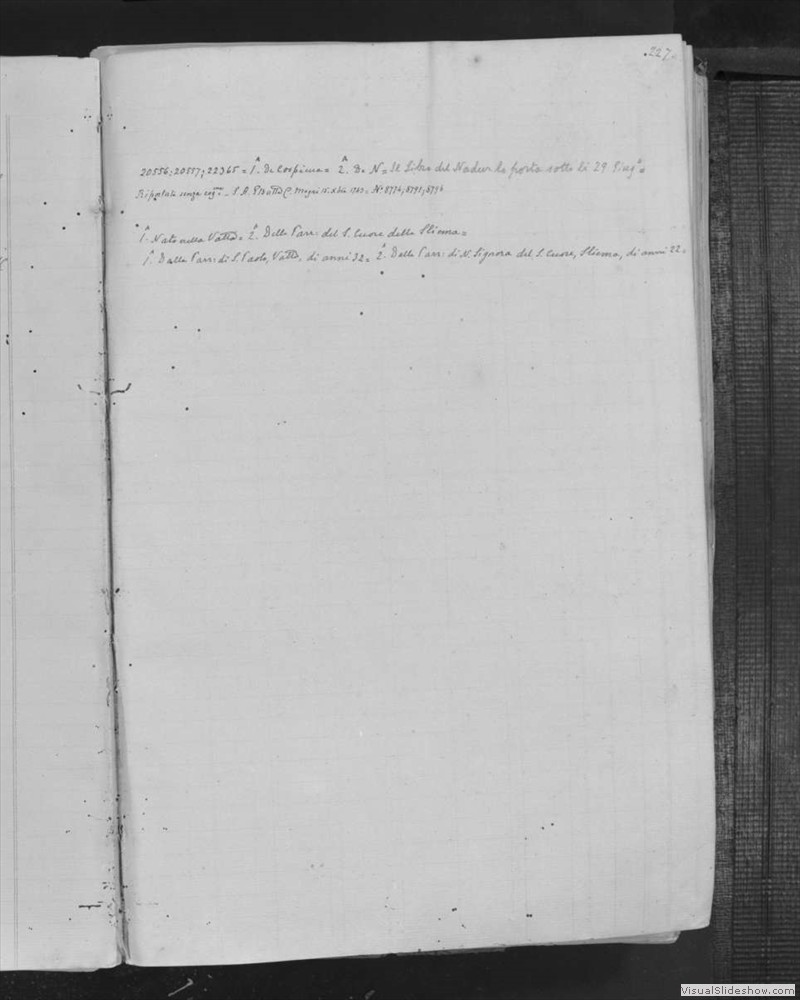 .227.
20556; 20557; 22365 = 1.ª Da Cospicua = 2.ª Da N = Il Libro del Nadur lo porta sotto li 29 Giug.º =
Riportata senza cog.e - N.º 8734; 8791; 8796
1.ª Nato nella Valtta = 2.ª Della Parr: del S. Cuore della Sliema =
1.ª Dalla Parr: di S. Paolo, Valtta, di anni 32 = 2.ª Della Parr: di N. Signora del S. Cuore, Sliema, di anni 22 =
VisualSlideshow.com